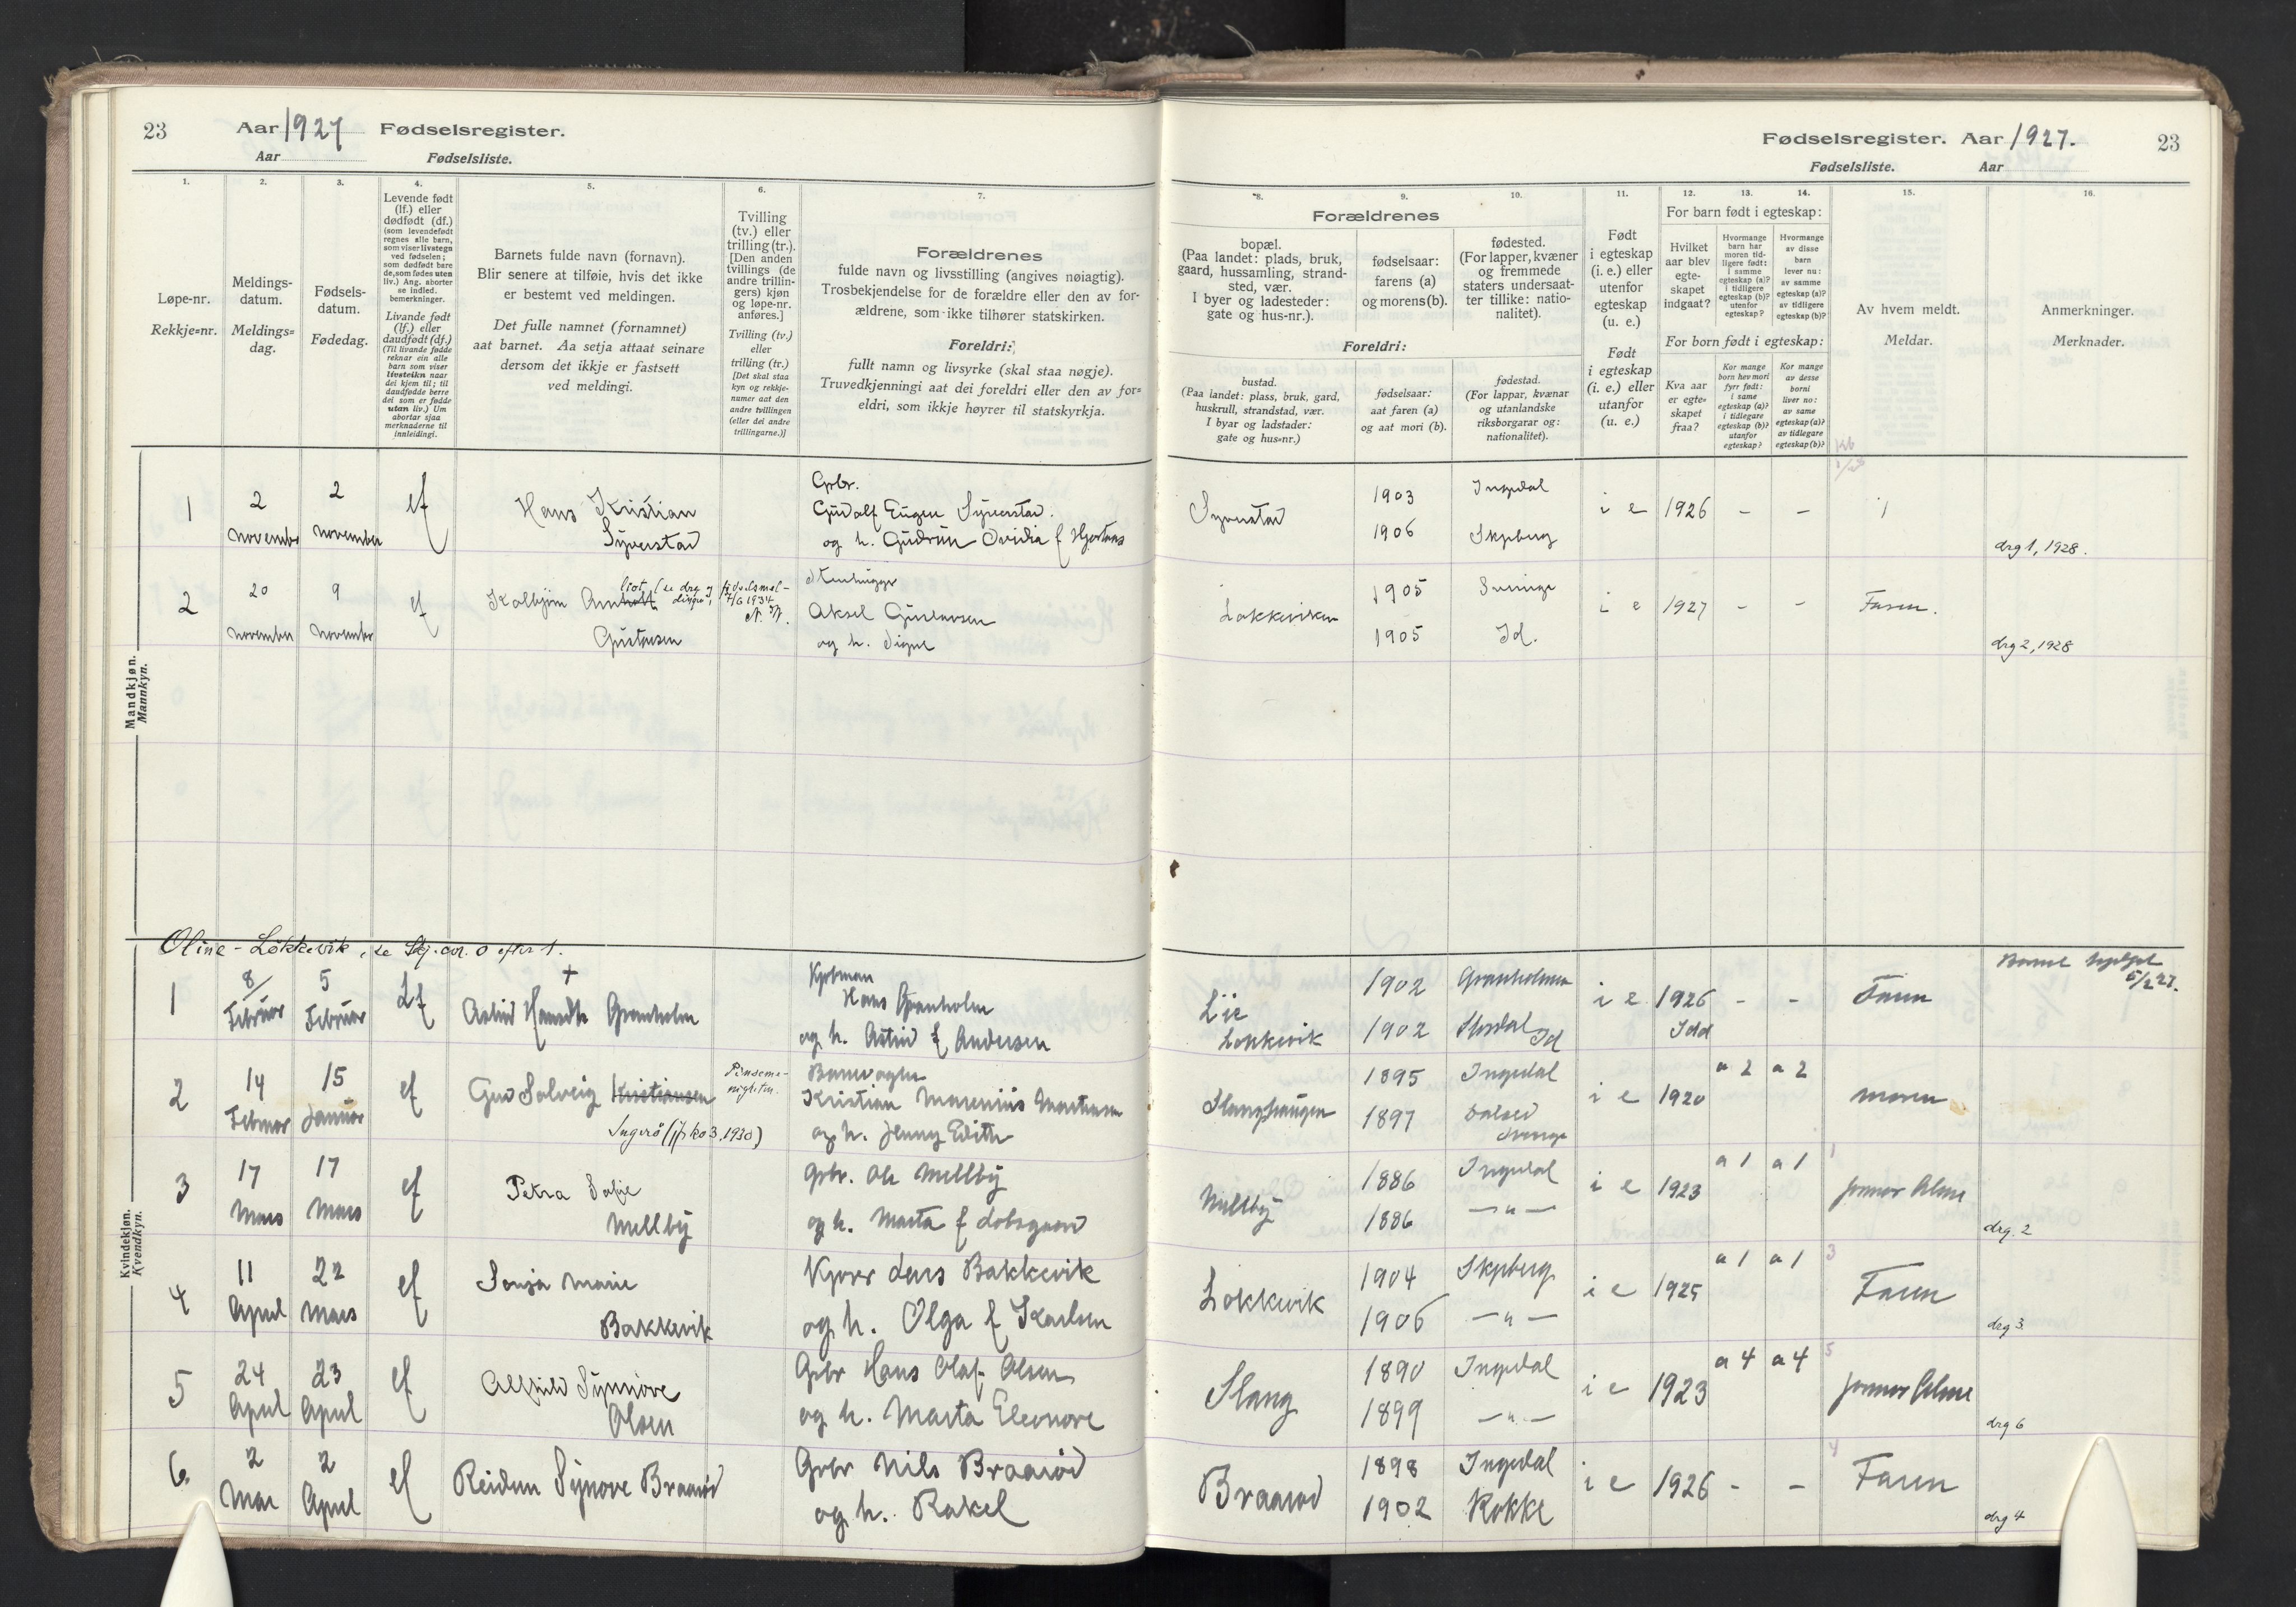 23 Aar 1927 Fødselsregister.
Aar Fødselsliste.
1. 2. 3. 4. 5. 6. 7.
Løpe-nr.
Rekkje=nr.
Meldings-
datum.
Meldings=
dag.
Fødsels-
datum.
Fødedag.
Levende født
(lf.) eller
dødfødt (df.)
(som levendefødt
regnes alle barn,
som viser livstegn
ved fødselen;
som dødfødt bare
de, som fødes uten
liv.) Ang. aborter
se indled.
bemerkninger.
Livande født
(lf.) eller
daudfødt (df.)
(Til livande fødde
reknar ein alle
barn som viser
livsteikn naar
dei kjem til; til
daudfødde berre
dei som er fødde
utan liv.) Um
abortar sjaa
merknaderne til
innleidingi.
Barnets fulde navn (fornavn).
Blir senere at tilføie, hvis det ikke
er bestemt ved meldingen.
Det fulle namnet (fornamnet)
aat barnet. Aa setja attaat seinare
dersom det ikkje er fastsett
ved meldingi.
Tvilling
(tv.) eller
trilling (tr.).
[Den anden
tvillings (de
andre trillin-
gers) kjøn
og løpe-nr.
anføres.]
Tvilling (tv.)
eller
trilling (tr.)
[Det skal staa
kyn og rekkje-
numer aat den
andre tvillingen
(eller dei andre
trillingarne.)]
Forældrenes
fulde navn og livsstilling (angives nøiagtig).
Trosbekjendelse for de forældre eller den av for-
ældrene, som ikke tilhører statskirken.
Foreldri:
fullt namn og livsyrke (skal staa nøgje).
Truvedkjenningi aat dei foreldri eller den av for=
eldri, som ikkje høyrer til statskyrkja.
Mandkjøn.
Mannkyn.
1 2 november 2 november lf Hans Kristian
Syverstad
Gbr.
Gudolf Eugen Syverstad.
og h. Gudrun Ovidia f Hjortnes
2 20 november 9 november lf Kolbjørn
Gustavsen
Aksel Gustavsen
og h. Signe
Kvindekjøn.
Kvendkyn.
Oline - Løkkevik, se Skj. 0 efter 1.
1 8/ Februar 5 Februar Lf + Granholm
Hans Granholm
og h. Astrid f Andersen
2 14 Februar 15 Januar lf Gud Solveig Kristiansen
Ingerø (jfr ko 3, 1930)
Pinseme-
nigheten.
Banevogter
Kristian Marenius Martinsen
og h. Jenny Edith
3 17 Mars 17 Mars lf Petra Sofie
Mellby
Gbr. Ole Mellby
og h. Marta f
4 11 April 22 Mars lf Sonja Marie
Bakkevik
Lars Bakkevik
og h. Olga f Karlsen
5 24 April 23 April lf Alfhild Synnøve
Olsen
Gbr Hans Olaf Olsen
og h. Marta Eleonore
6. 2 Mai 2 April lf Reidun Synøve Braarød
Gbr Nils Braarød
og h. Rakel
Fødselsregister. Aar 1927. 23
Fødselsliste. Aar
8. 9. 10. 11. 12. 13. 14. 15. 16.
Forældrenes
bopæl.
(Paa landet: plads, bruk,
gaard, hussamling, strand-
sted, vær.
I byer og ladesteder:
gate og hus-nr.).
fødselsaar:
farens (a)
og morens (b).
fødested.
(For lapper, kvæner
og fremmede
staters undersaat-
ter tillike: natio-
nalitet).
Foreldri:
bustad.
(Paa landet: plass, bruk, gard,
huskrull, strandstad, vær.
I byar og ladstader:
gate og hus=nr.)
fødselsaar:
aat faren (a)
og aat mori (b).
fødestad.
(For lappar, kvænar
og utanlandske
riksborgarar og:
nationalitet).
Født
i egteskap
(i. e.) eller
utenfor
egteskap
(u. e.)
Født
i egteskap
(i. e.) eller
utanfor
egteskap
(u. e.)
For barn født i egteskap:
Hvilket
aar blev
egte-
skapet
indgaat?
Hvormange
barn har
moren tid-
ligere født:
i samme
egteskap (a)?
i tidligere
egteskap (b)?
utenfor
egteskap?
Hvormange
av disse
barn
lever nu:
av samme
egteskap (a)?
av tidligere
egteskap (b)?
For born født i egteskap:
Kva aar
er egte=
skapet
fraa?
Kor mange
born hev mori
fyrr født:
i same
egteskap (a)?
i tidlegare
egteskap (b)?
utanfor
egteskap?
Kor mange
av desse
borni
liver no:
av same
egteskap (a)?
av tidlegare
egteskap (b)?
Av hvem meldt.
Meldar.
Anmerkninger.
Merknader.
Syverstad 1903 Ingedal i e 1926 - -
1906 Skjeberg
drg 1, 1928.
Løkkeviken 1905 Sverige i e 1927 - - Faren.
1905 Id.
drg 2, 1928
Lie
Løkkevik
1902 Granholmen i e 1926 - - Faren
1902 Id Idd
5/2 27.
Slanghaugen 1895 Ingedal i e 1920 a 2 a 2 moren
1897 Sverige
Mellby 1886 Ingedal i e 1923 a 1 a 1 1
1886 — " —
drg. 2
Løkkevik 1904 Skjeberg i e 1925 a 1 a 1 3 Faren
1906 — " —
drg 3.
Slang 1890 Ingedal i e 1923 a 4 a 4 5
1899 — " —
drg 6
Braarød 1898 Ingedal i e 1926 - - 4 Faren
1902 Rokke
drg 4